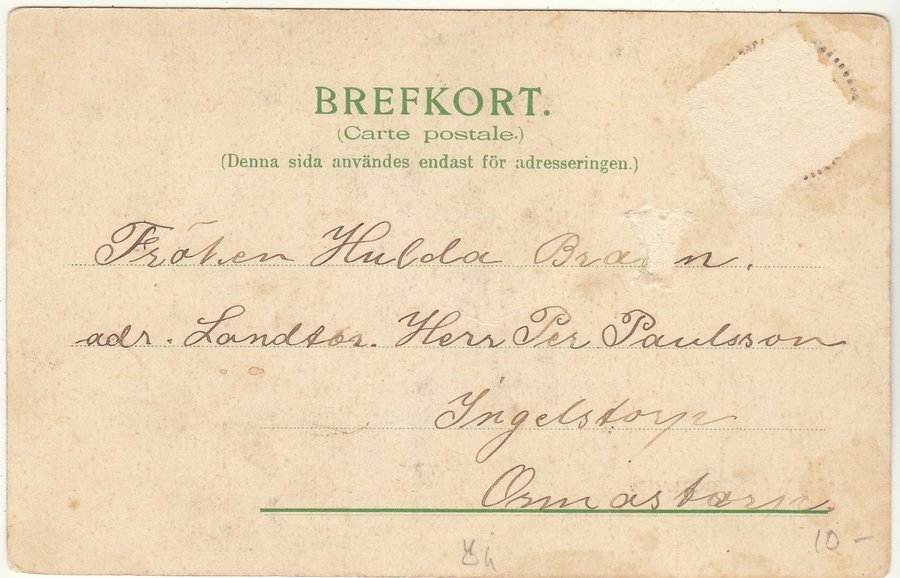 BREFKORT.
(Carte postale.)
(Denna sida användes endast för adresseringen.)
Fröken Hulda
adr. Landtbr. Herr Per Paulsson
Ingelstorp
Ormastorp.
10 -